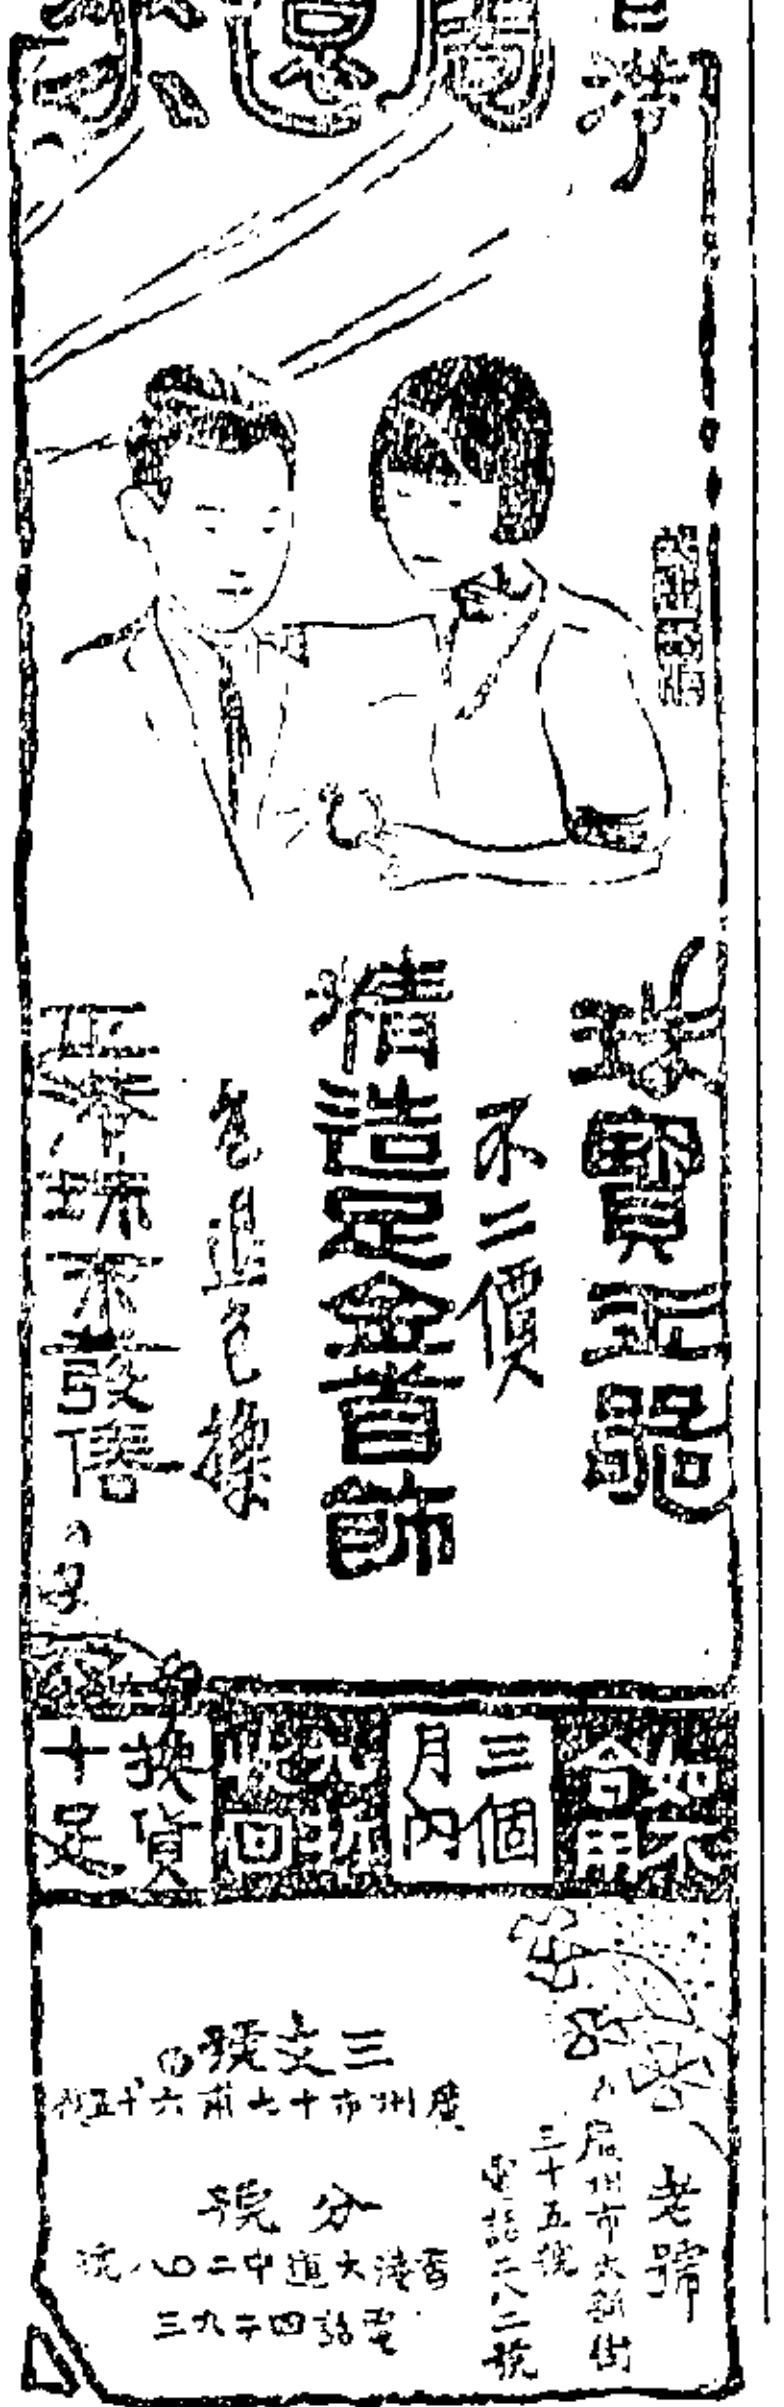 珠寶玉器
不二價
精造足金首飾
包退包換
正港珠末發售
如不合用
三個月內
九折收回
換貨十足
老號
廣州市大新街三十五號
電話二八二號
三支號
廣州市十七甫六十五號
分號
香港大道中二四八號
電話四二九三